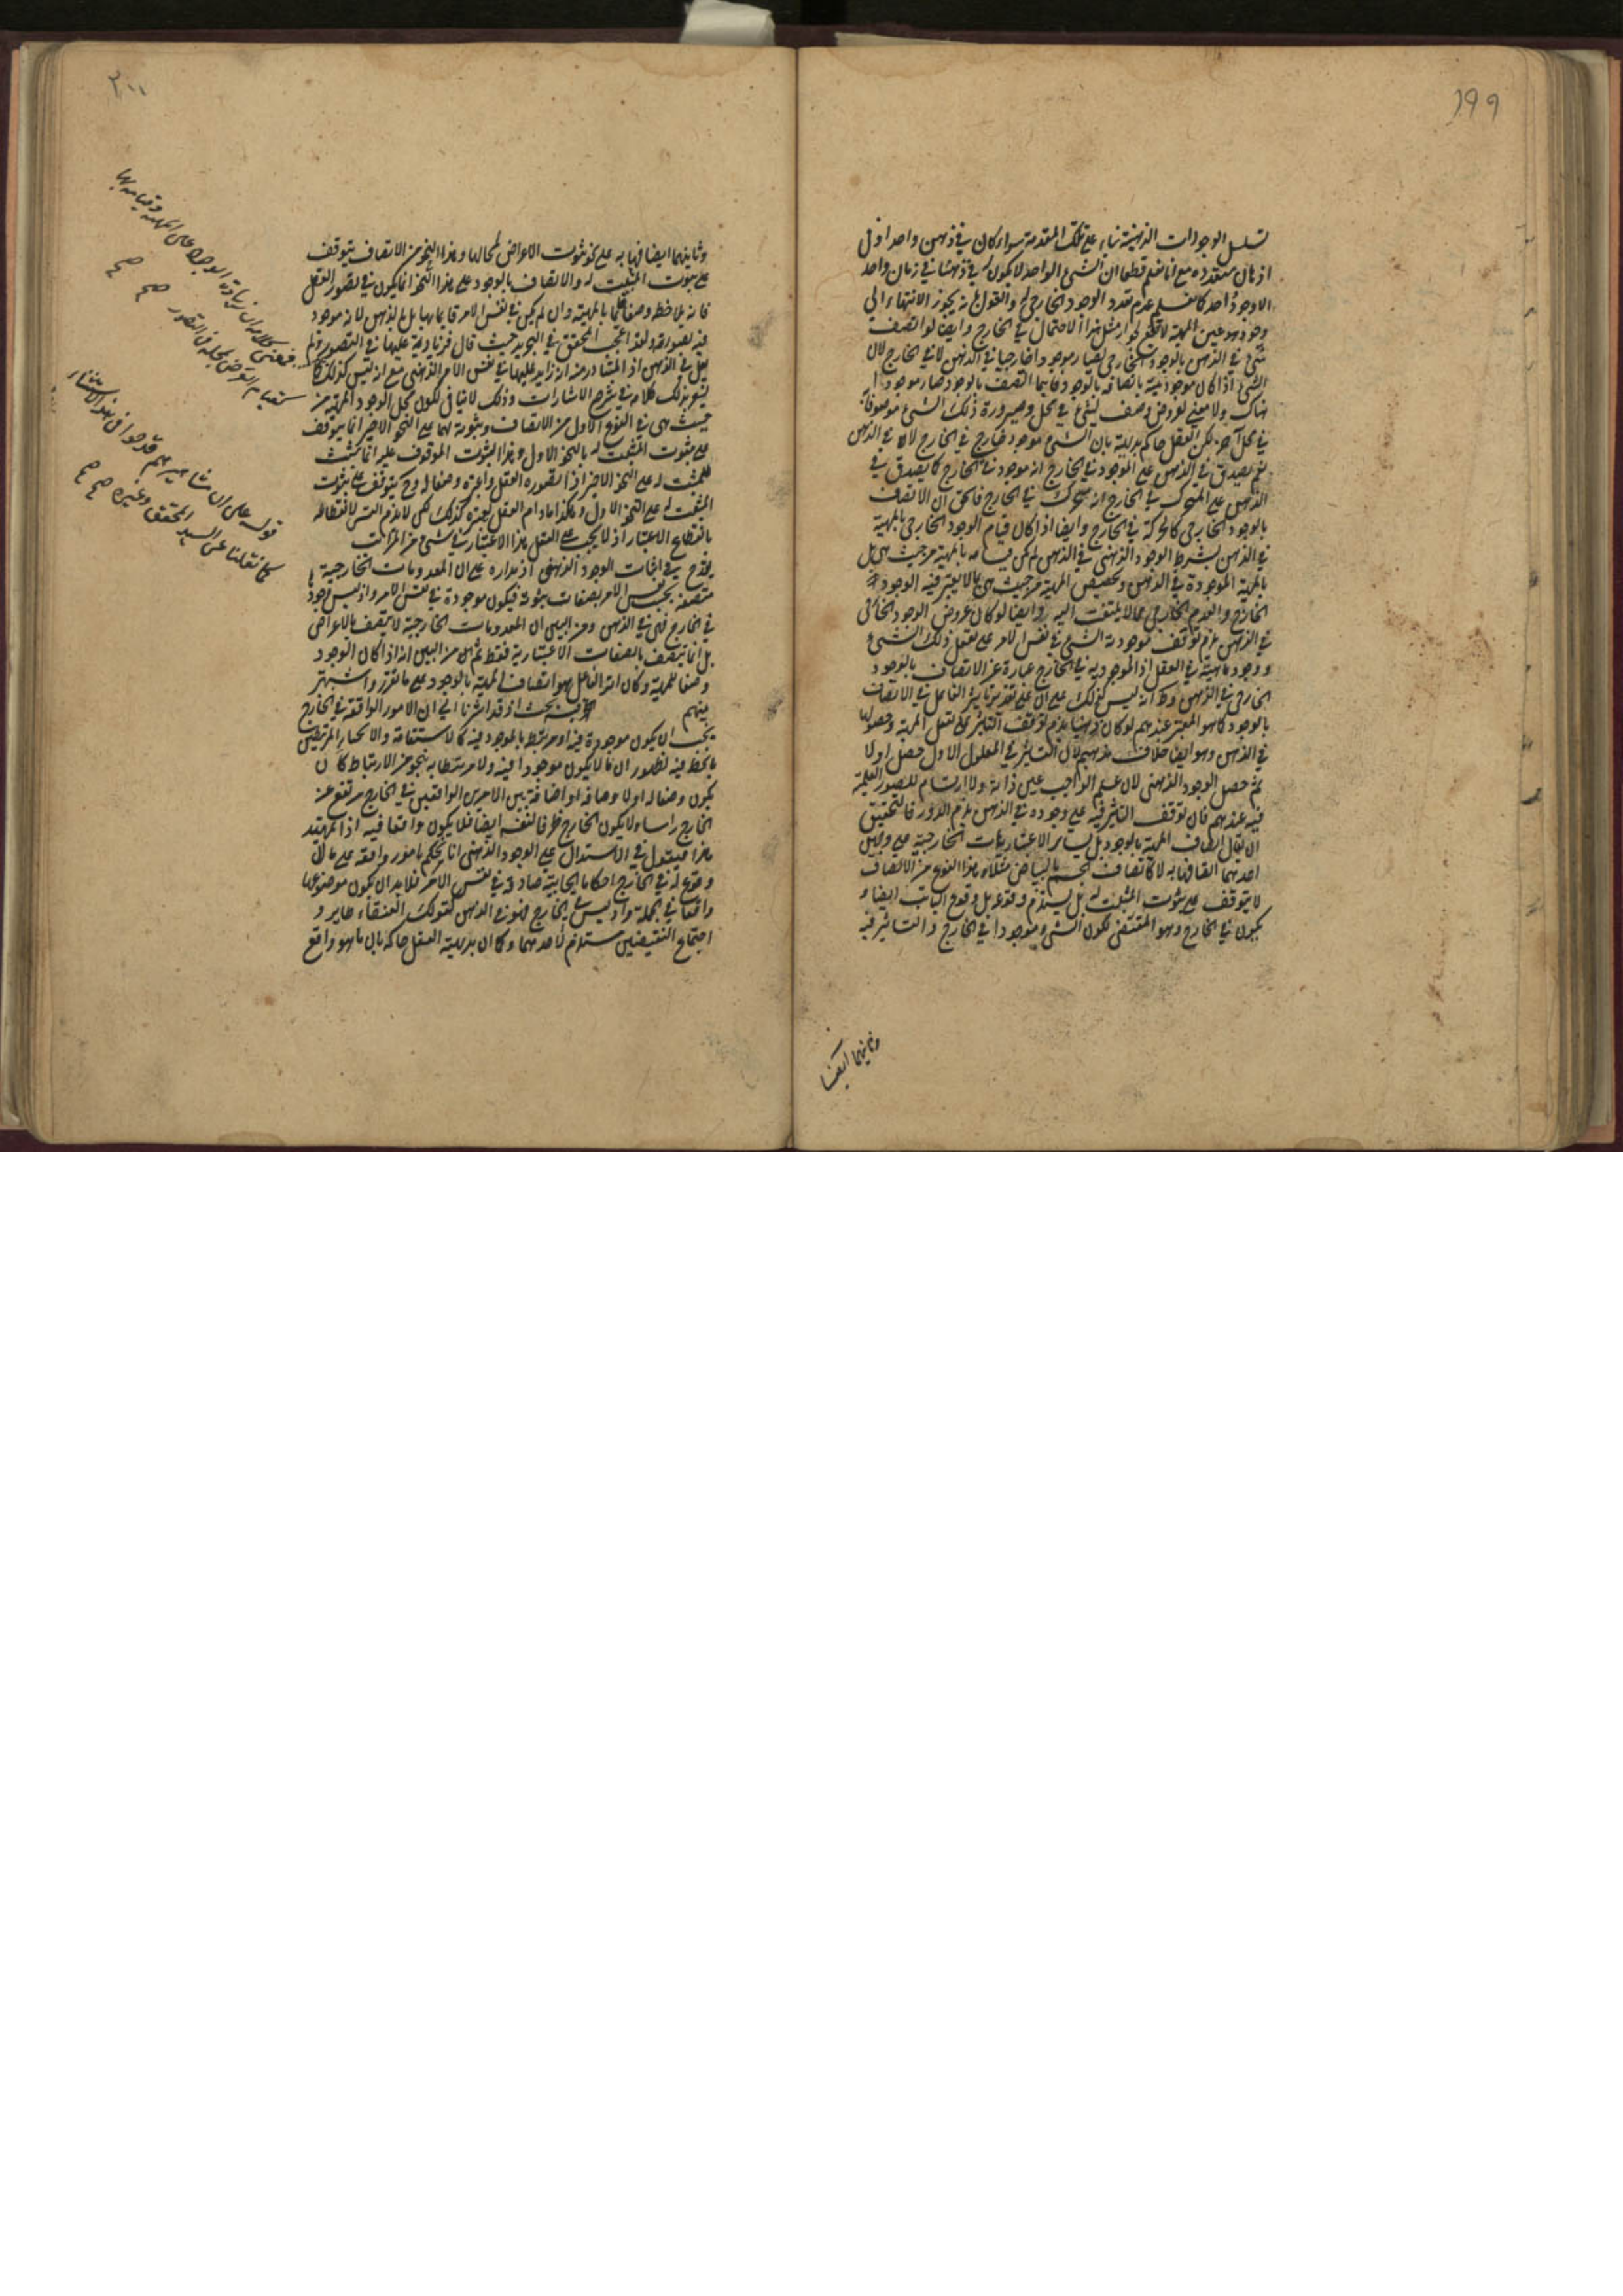 ١٩٩
تسلسل الوجودات الذهنية بناء على تلك المقدمة سواء كان في ذهن واحد او في
اذهان متعدده مع انا نعلم قطعا ان الشيء الواحد لا يكون له في ذهننا في زمان واحد
الا وجود واحد كما نعلم عدم تعدد الوجود الخارجي له والقول بانه يجوز الانتهاء الى
وجود هو عين المهية لا مثل هذا الاحتمال في الخارج وايضا لو اتصف
شيء في الذهن بالوجود الخارجي لصار موجودا خارجيا في الذهن لا في الخارج لان
الشيء اذا كان موجوديته باتصافه بالوجود فاينما اتصف بالوجود صار موجودا
هناك ولا معنى لعروض وصف لشيء في محل وصيرورة ذلك الشيء موصوفا به
في محل آخر لكن العقل حاكم بديهة بان الشيء موجود خارج في الخارج لا في الذهن
نعم يصدق في الذهن على الموجود في الخارج انه موجود في الخارج كما يصدق في
الذهن على المتحرك في الخارج انه متحرك في الخارج فالحق ان الاتصاف
بالوجود الخارجي كالحركة في الخارج وايضا اذا كان قيام الوجود الخارجي بالمهية
في الذهن بشرط الوجود الذهني في الذهن لم يكن قيامه بالمهية من حيث هي بل
بالمهية الموجودة في الذهن وتخصيص المهية من حيث هي بما لا يعتبر فيه الوجود
الخارج والعدم الخارجي مما لا يلتفت اليه وايضا لو كان عروض الوجود الخارجي
في الذهن لزم توقف موجودية الشيء في نفس الامر على تعقل ذلك الشيء
ووجود ماهيته في العقل اذ الموجودية في الخارج عبارة عن الاتصاف بالوجود
الخارجي في الذهن وظ انه ليس كذلك على ان على تقدير تاثير الفاعل في الاتصاف
بالوجود كما هو المعتبر عندهم لو كان ذهنيا يلزم توقف التاثير على تعقل المهية وحصولها
في الذهن وهو ايضا خلاف مذهبهم لان التاثير في المعلول الاول حصل اولا
ثم حصل الوجود الذهني لان علم الواجب عين ذاته ولا ارتسام للصور العلمية
فيه عندهم فان توقف التاثير فيه على وجوده في الذهن يلزم الدور فالتحقيق
ان يقال اتصاف المهية بالوجود بل بساير الاعتباريات الخارجية على وجهين
احدهما اتصافها به لا كاتصاف الجسم بالبياض مثلا وهذا النوع من الاتصاف
لا يتوقف على ثبوت المثبت له بل يستلزم وقوعه بل وقوع الثابت ايضا و
يكون في الخارج وهو المقتضي لكون الشيء موجودا في الخارج والتاثير فيه
وثانيهما ايضا
٢٠٠
وثانيهما ايضا فيها به على نحو ثبوت الاعراض لمحالها وهذا النحو من الاتصاف يتوقف
على ثبوت المثبت له والاتصاف بالوجود على هذا النحو انما يكون في تصور العقل
فانه يلاحظه وصفا قائما بالمهية وان لم يكن في نفس الامر قايما بها بل بالذهن لانه موجود
فيه بصورته ولهذا المحقق في التجريد حيث قال فزيادته عليها في التصور ولم
يقل في الذهن اذ المتبادر منه انه زايد عليها في نفس الامر الذهني مع انه ليس كذلك كما
يشعر بذلك كلامه في شرح الاشارات وذلك لا ينافي لكون محل الوجود المهية من
حيث هي في النوع الاول من الاتصاف وثبوته لها على النحو الاخير انما يتوقف
على ثبوت المثبت له بالنحو الاول وهذا الثبوت الموقوف عليه انما يثبت
للمثبت له على النحو الاخير اذا تصوره العقل واعتبره وصفا له وح يتوقف على ثبوت
المثبت له على النحو الاول وهكذا مادام العقل يعتبره كذلك لكن لا يلزم التس لانقطاعه
بانقطاع الاعتبار اذ لا يجب على العقل هذا الاعتبار في شيء من المراتب
يقدح في اثبات الوجود الذهني اذ مداره على ان المعدومات الخارجية
متصفة بحسب نفس الامر بصفات ثبوتية فيكون موجودة في نفس الامر واذ ليس وجود
في الخارج فهي في الذهن ومن البين ان المعدومات الخارجية لا يتصف بالاعراض
بل انما يتصف بالصفات الاعتبارية فقط ثم من البين انه اذا كان الوجود
وصفا للمهية وكان اثر الفاعل هو اتصاف المهية بالوجود على ما تقرر واشتهر
بينهم فيه بحث اذ قد اشرنا الى ان الامور الواقعة في الخارج
يجب ان يكون موجودة فيه او مرتبطة بالموجود فيه كالاستقامة والانحناء المرتبطين
بالخط فيه لظهور ان ما لا يكون موجودا فيه ولا مرتبطا به بنحو من الارتباط كان
يكون وصفا له او لاوصافه او اضافة بين الامرين الواقعين في الخارج مرتفع عن
الخارج راسا ولا يكون الخارج ظرفا لنفسه ايضا فلا يكون واقعا فيه اذا تمهد
هذا فيقول في الاستدلال على الوجود الذهني انا نحكم بامور واقعة على ما لا
وقوع له في الخارج احكاما ايجابية صادقة في نفس الامر فلا بد ان يكون موضوعها
واقعا في الجملة واذ ليس في الخارج فهو في الذهن كقولك العنقاء طاير و
اجتماع النقيضين مستلزم لاحدهما وكان بديهة العقل حاكمة بان ما هو واقع
فمعنى كلامه ان زيادة الوجود على المهية وقيامه بها
كقيام العرض بمحله في التصور صح صح
قوله على ان مشاهيرهم قدحوا في هذا الاشتهار
كما نقلنا عن السيد المحقق وغيره صح صح